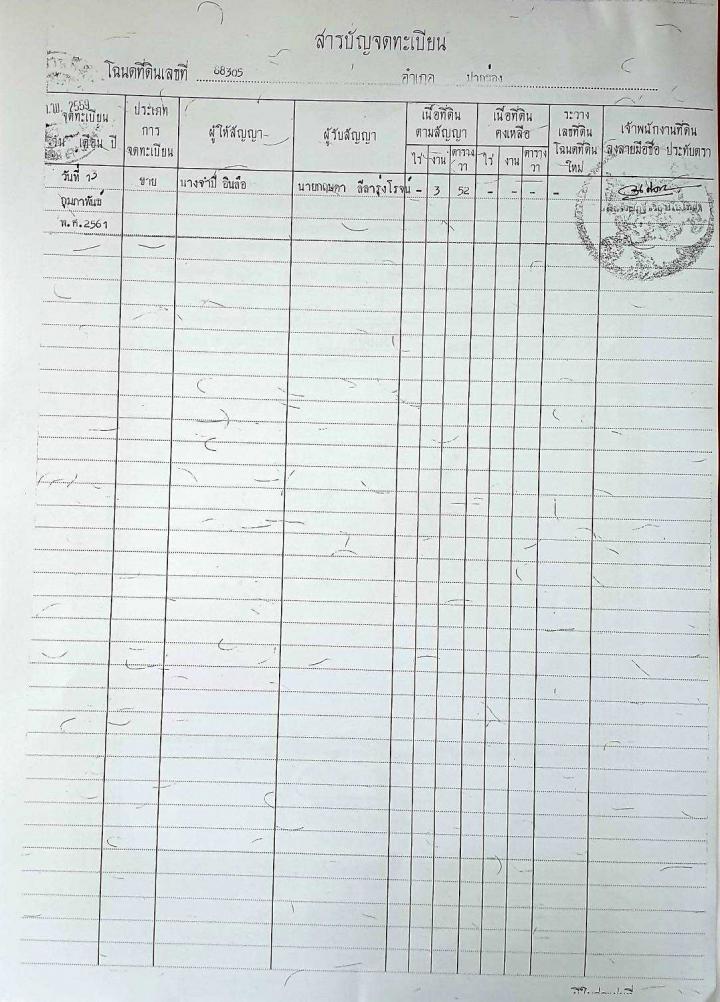 สารบัญจดทะเบียน
โฉนดที่ดินเลขที่ 88305 อำเภอ ปากช่อง
ก.พ. 2559
จดทะเบียน
วัน เดือน ปี
ประเภท
การ
จดทะเบียน
ผู้ให้สัญญา
ผู้รับสัญญา
เนื้อที่ดิน
ตามสัญญา
ไร่ งาน ตาราง
วา
เนื้อที่ดิน
คงเหลือ
ไร่ งาน ตาราง
วา
ระวาง
เลขที่ดิน
โฉนดที่ดิน
ใหม่
เจ้าพนักงานที่ดิน
ลงลายมือชื่อ ประทับตรา
วันที่ 13 ขาย นางจำปี อินลือ นายกฤษดา ลีลารุ่งโรจน์ - 3 52 - - - -
กุมภาพันธ์
พ.ศ.2561